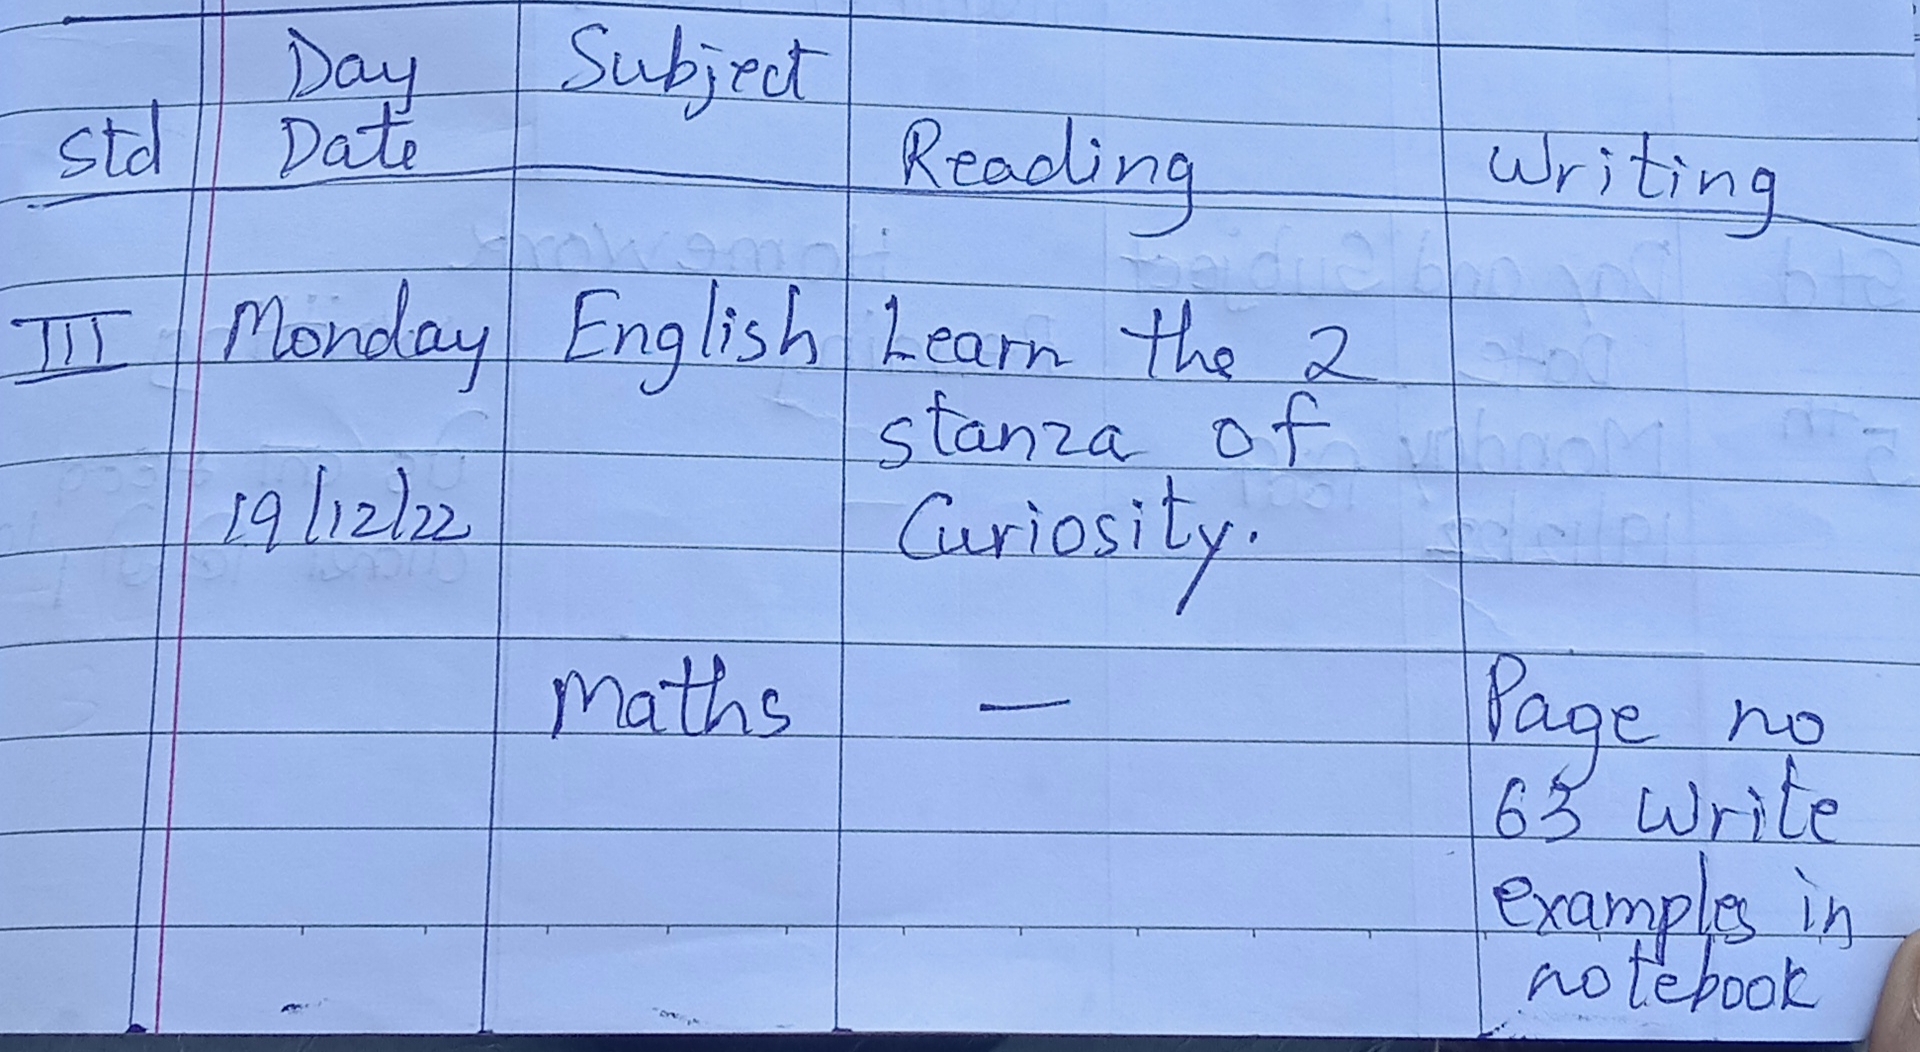 Day Subject
Std Date Reading Writing
III Monday English Learn the 2
stanza of
19/12/22 Curiosity.
Maths — Page no
63 Write
examples in
notebook